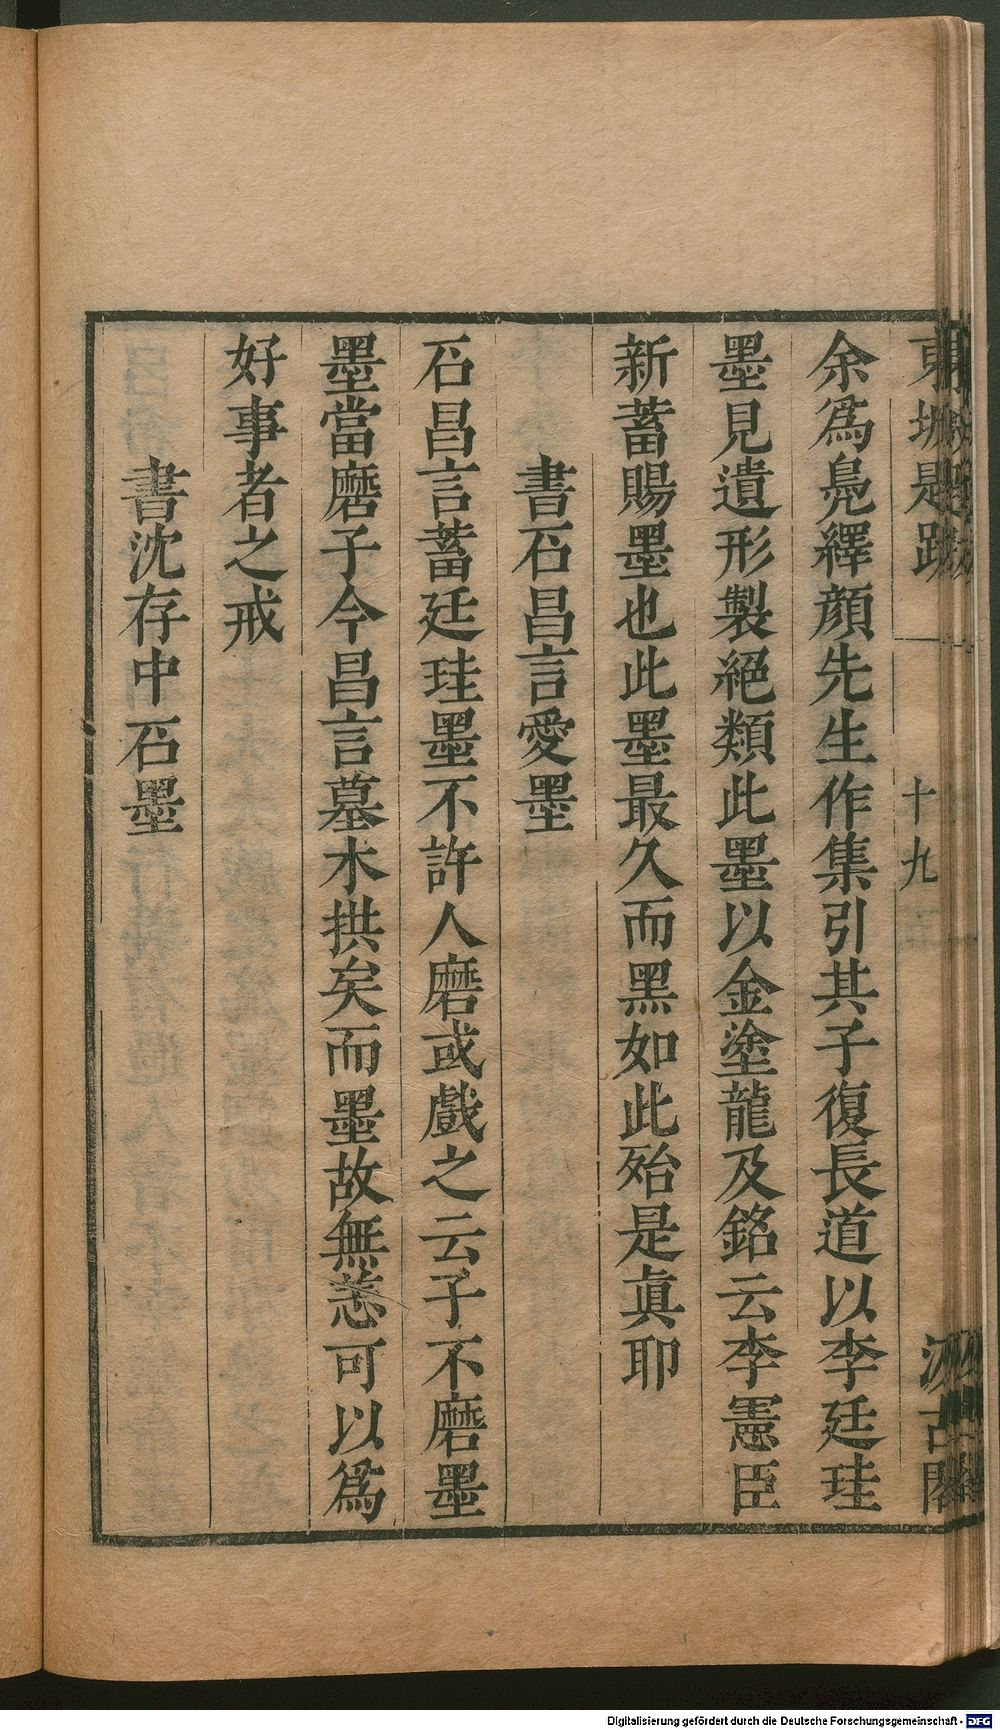 東坡題跋
十九
汲古閣
余爲鳧繹顔先生作集引其子復長道以李廷珪
墨見遺形製絕類此墨以金塗龍及銘云李憲臣
新蓄賜墨也此墨最久而黑如此殆是眞耶
書石昌言愛墨
石昌言蓄廷珪墨不許人磨或戲之云子不磨墨
墨當磨子今昌言墓木拱矣而墨故無恙可以爲
好事者之戒
書沈存中石墨
Digitalisierung gefördert durch die Deutsche Forschungsgemeinschaft - DFG